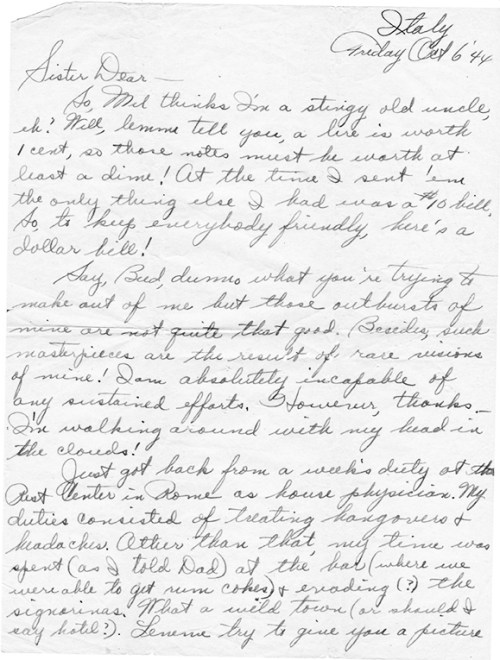 Italy
Friday Oct 6 '44
Sister Dear —
So, Mil thinks I'm a stingy old uncle,
eh? Well, lemme tell you, a lire is worth
1 cent, so those notes must be worth at
least a dime! At the time I sent 'em
the only thing else I had was a $10 bill,
So, to keep everybody friendly, here's a
dollar bill!
Say, Bud, dunno what you're trying to
make out of me but those outbursts of
mine are not quite that good. Besides, such
masterpieces are the result of rare visions
of mine! I am absolutely incapable of
any sustained efforts. However, thanks —
I'm walking around with my head in
the clouds!
Just got back from a week's duty at the
Rest Center in Rome as house physician. My
duties consisted of treating hangovers &
headaches. Other than that, my time was
spent (as I told Dad) at the bar (where we
were able to get rum cokes) & evading (?) the
signorinas. What a wild town (or should I
say hotel?). Lemme try to give you a picture